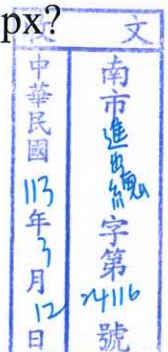 px?
文
南市進出總字第24116號
中華民國113年3月12日